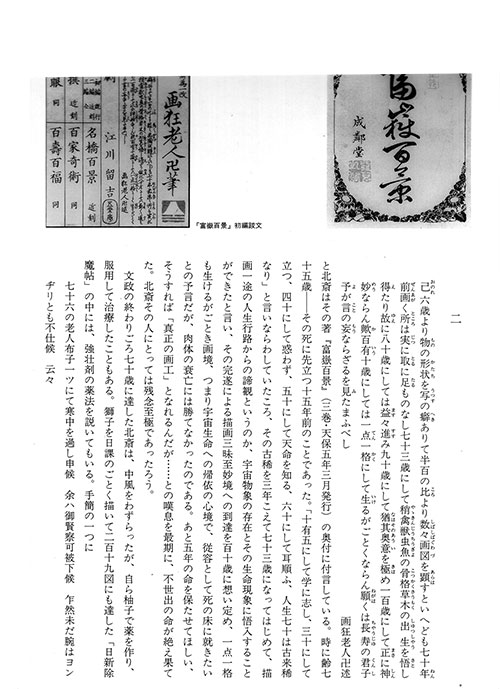 富嶽百景
成鄰堂
画狂老人卍筆
江川留吉
名橋百景 近刻
百家奇術 同
百壽百福 同
『富嶽百景』初編跋文
二
己六歳より物の形状を写の癖ありて半百の比より数々画図を顕すといへども七十年
前画く所は実に取に足ものなし七十三歳にして稍禽獣虫魚の骨格草木の出生を悟し
得たり故に八十歳にしては益々進み九十歳にして猶其奥意を極め一百歳にして正に神
妙ならん歟百有十歳にしては一点一格にして生るがごとくならん願くは長寿の君子
予が言の妄ならざるを見たまふべし
画狂老人卍述
と北斎はその著『富嶽百景』（三巻・天保五年三月発行）の奥付に付言している。時に齢七
十五歳――その死に先立つ十五年前のことであった。「十有五にして学に志し、三十にして
立つ、四十にして惑わず、五十にして天命を知る、六十にして耳順ふ、人生七十は古来稀
なり」と言いならわしていたころ、その古稀を三年こえて七十三歳になってはじめて、描
画一途の人生行路からの諦観というのか、宇宙物象の存在とその生命現象に悟入すること
ができたと言い、その完遂による描画三昧至妙境への到達を百十歳に想い定め、一点一格
も生けるがごとき画境、つまり宇宙生命への帰依の心境で、従容として死の床に就きたい
との予言だが、肉体の衰亡には勝てなかったのである。あと五年の命を保たせてほしい、
そうすれば「真正の画工」となれるんだが……との嘆息を最期に、不世出の命が絶え果て
た。北斎その人にとっては残念至極であったろう。
文政の終わりごろ七十歳に達した北斎は、中風をわずらったが、自ら柚子で薬を作り、
服用して治療したこともある。獅子を日課のごとく描いて二百十九図にも達した「日新除
魔帖」の中には、強壮剤の薬法を説いてもいる。手簡の一つに
七十六の老人布子一ツにて寒中を過し申候 余ハ御賢察可被下候 乍然未だ腕はヨン
ヂリとも不仕候 云々